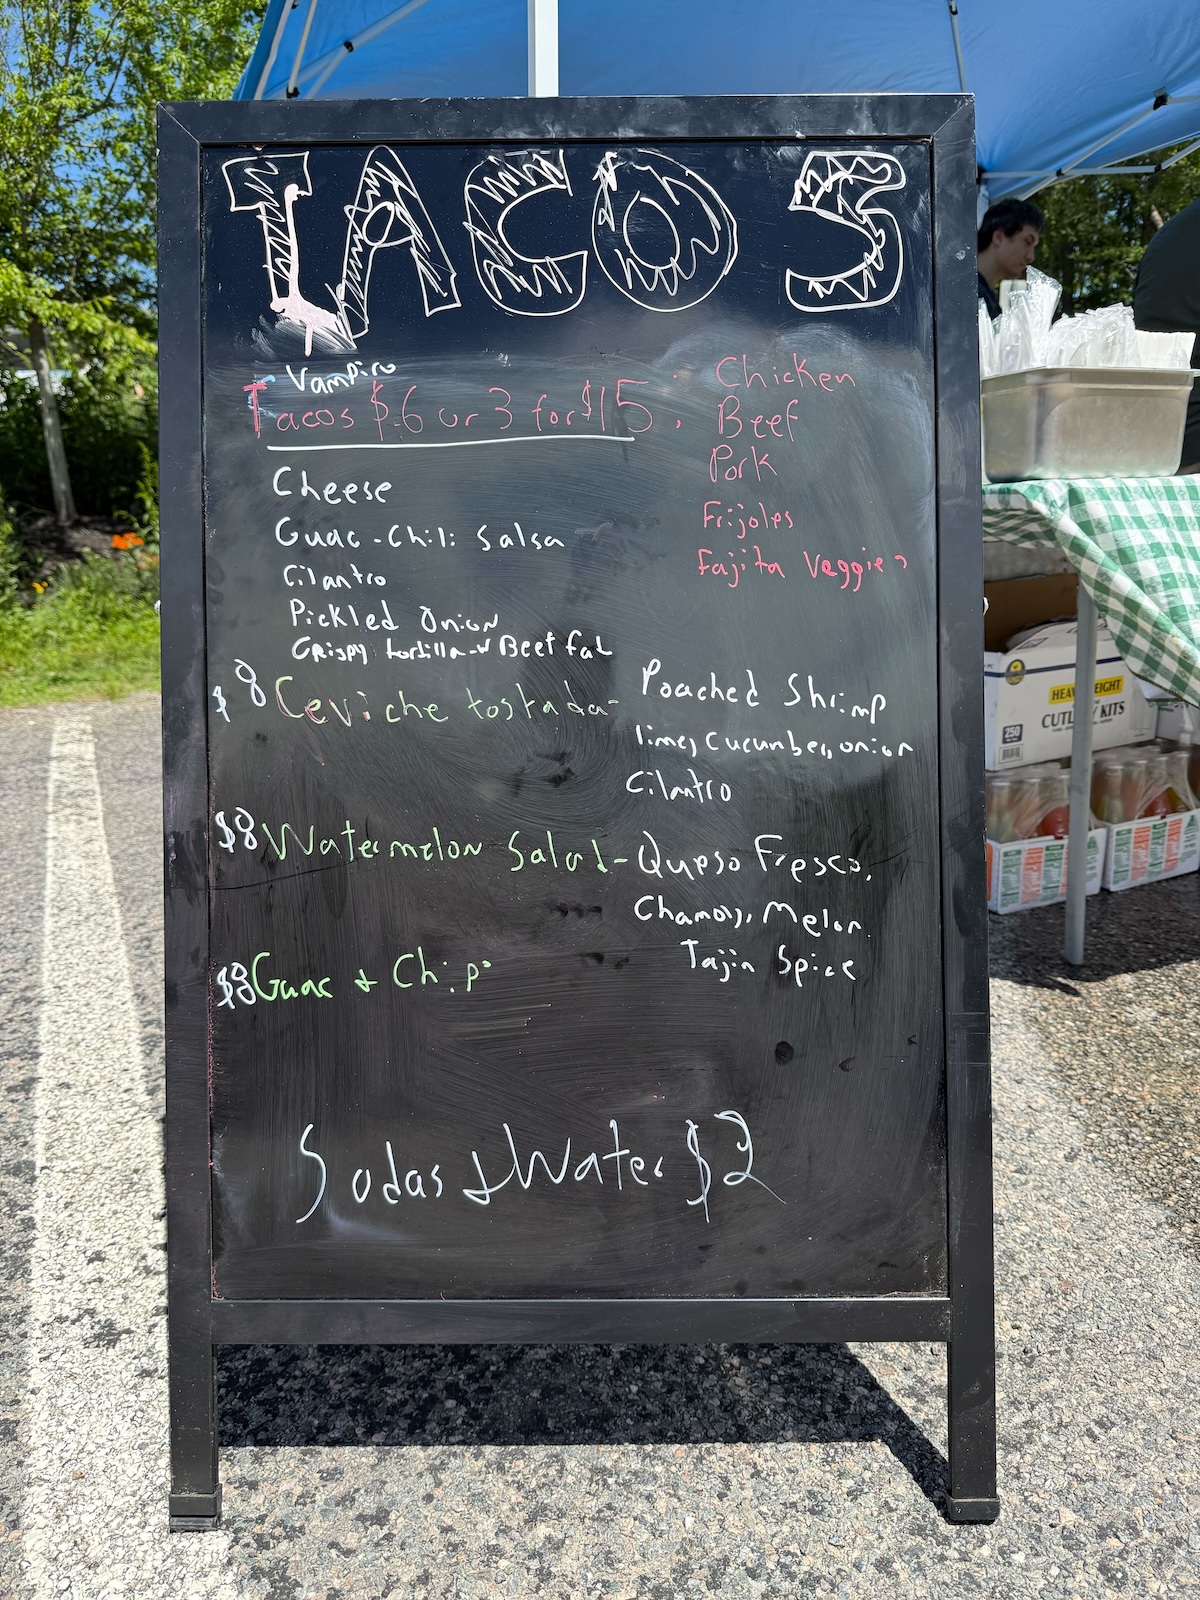 TACOS
Vampiro
Tacos $6 or 3 for $15
Chicken
Beef
Pork
Frijoles
Fajita Veggies
Cheese
Guac-Chili Salsa
Cilantro
Pickled Onion
Crispy tortilla w Beef fat
$8 Ceviche tostada- Poached Shrimp
lime, cucumber, onion
Cilantro
$8 Watermelon Salad- Queso Fresco,
Chamoy, Melon
Tajin Spice
$8 Guac & Chips
Sodas & Water $2
HEAVY WEIGHT
CUTLERY KITS
250